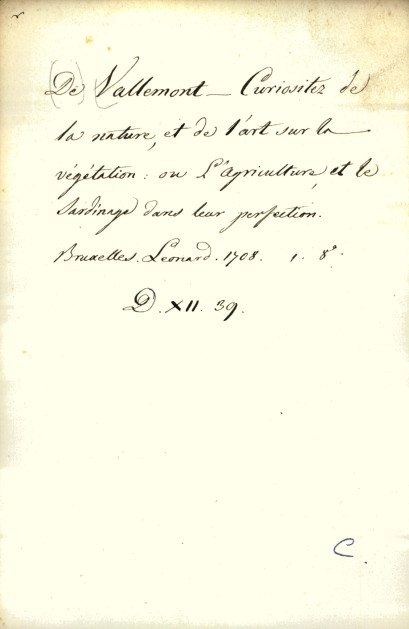 (De) Vallemont — Curiositez de
la nature, et de l'art sur la
végétation : ou L'Agriculture, et le
Jardinage dans leur perfection.
Bruxelles. Léonard. 1708. 1. 8°.
D. XII. 39.
C.